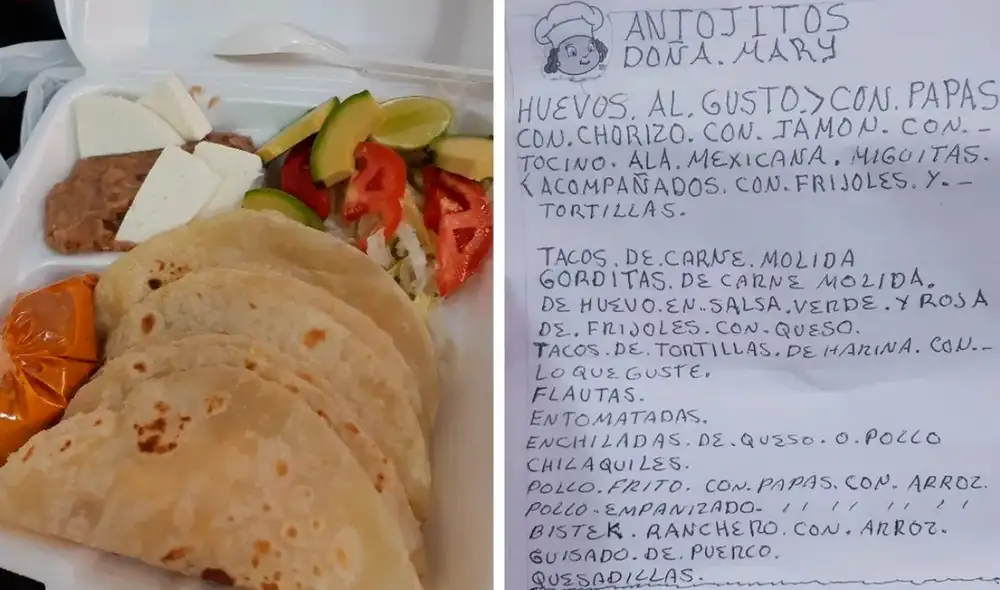 ANTOJITOS
DOÑA. MARY
HUEVOS. AL. GUSTO.>CON. PAPAS
CON. CHORIZO. CON. JAMON. CON.-
TOCINO. ALA. MEXICANA. MIGUITAS.
<ACOMPAÑADOS. CON. FRIJOLES. Y.-
TORTILLAS.
TACOS. DE. CARNE. MOLIDA
GORDITAS. DE CARNE MOLIDA.
DE HUEVO. EN. SALSA. VERDE. Y ROJA
DE. FRIJOLES. CON. QUESO.
TACOS. DE. TORTILLAS. DE HARINA. CON.--
LO QUE GUSTE.
FLAUTAS.
ENTOMATADAS.
ENCHILADAS. DE. QUESO. O. POLLO
CHILAQUILES.
POLLO. FRITO. CON. PAPAS. CON. ARROZ.
POLLO. EMPANIZADO. 11 11 11 11 11
BISTEK. RANCHERO. CON. ARROZ.
GUISADO. DE. PUERCO.
QUESADILLAS.